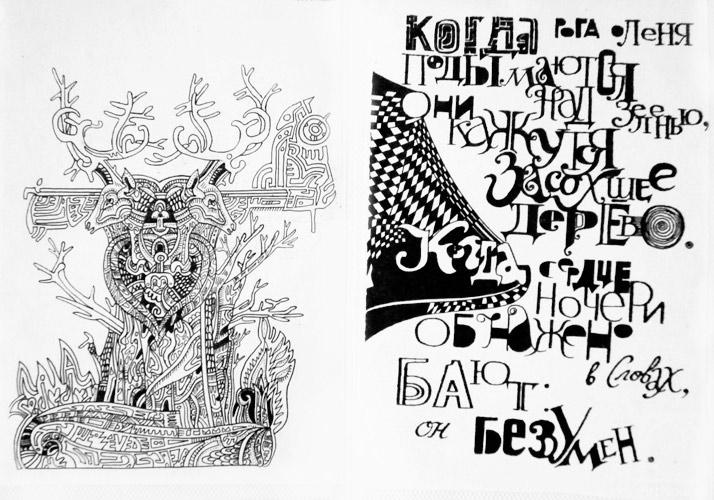 Когда рога оленя
подымаются
над зеленью,
они
кажутся
засохшее
дерево.
Когда сердце
ночери
обнажено
в словах,
бают:
он безумен.